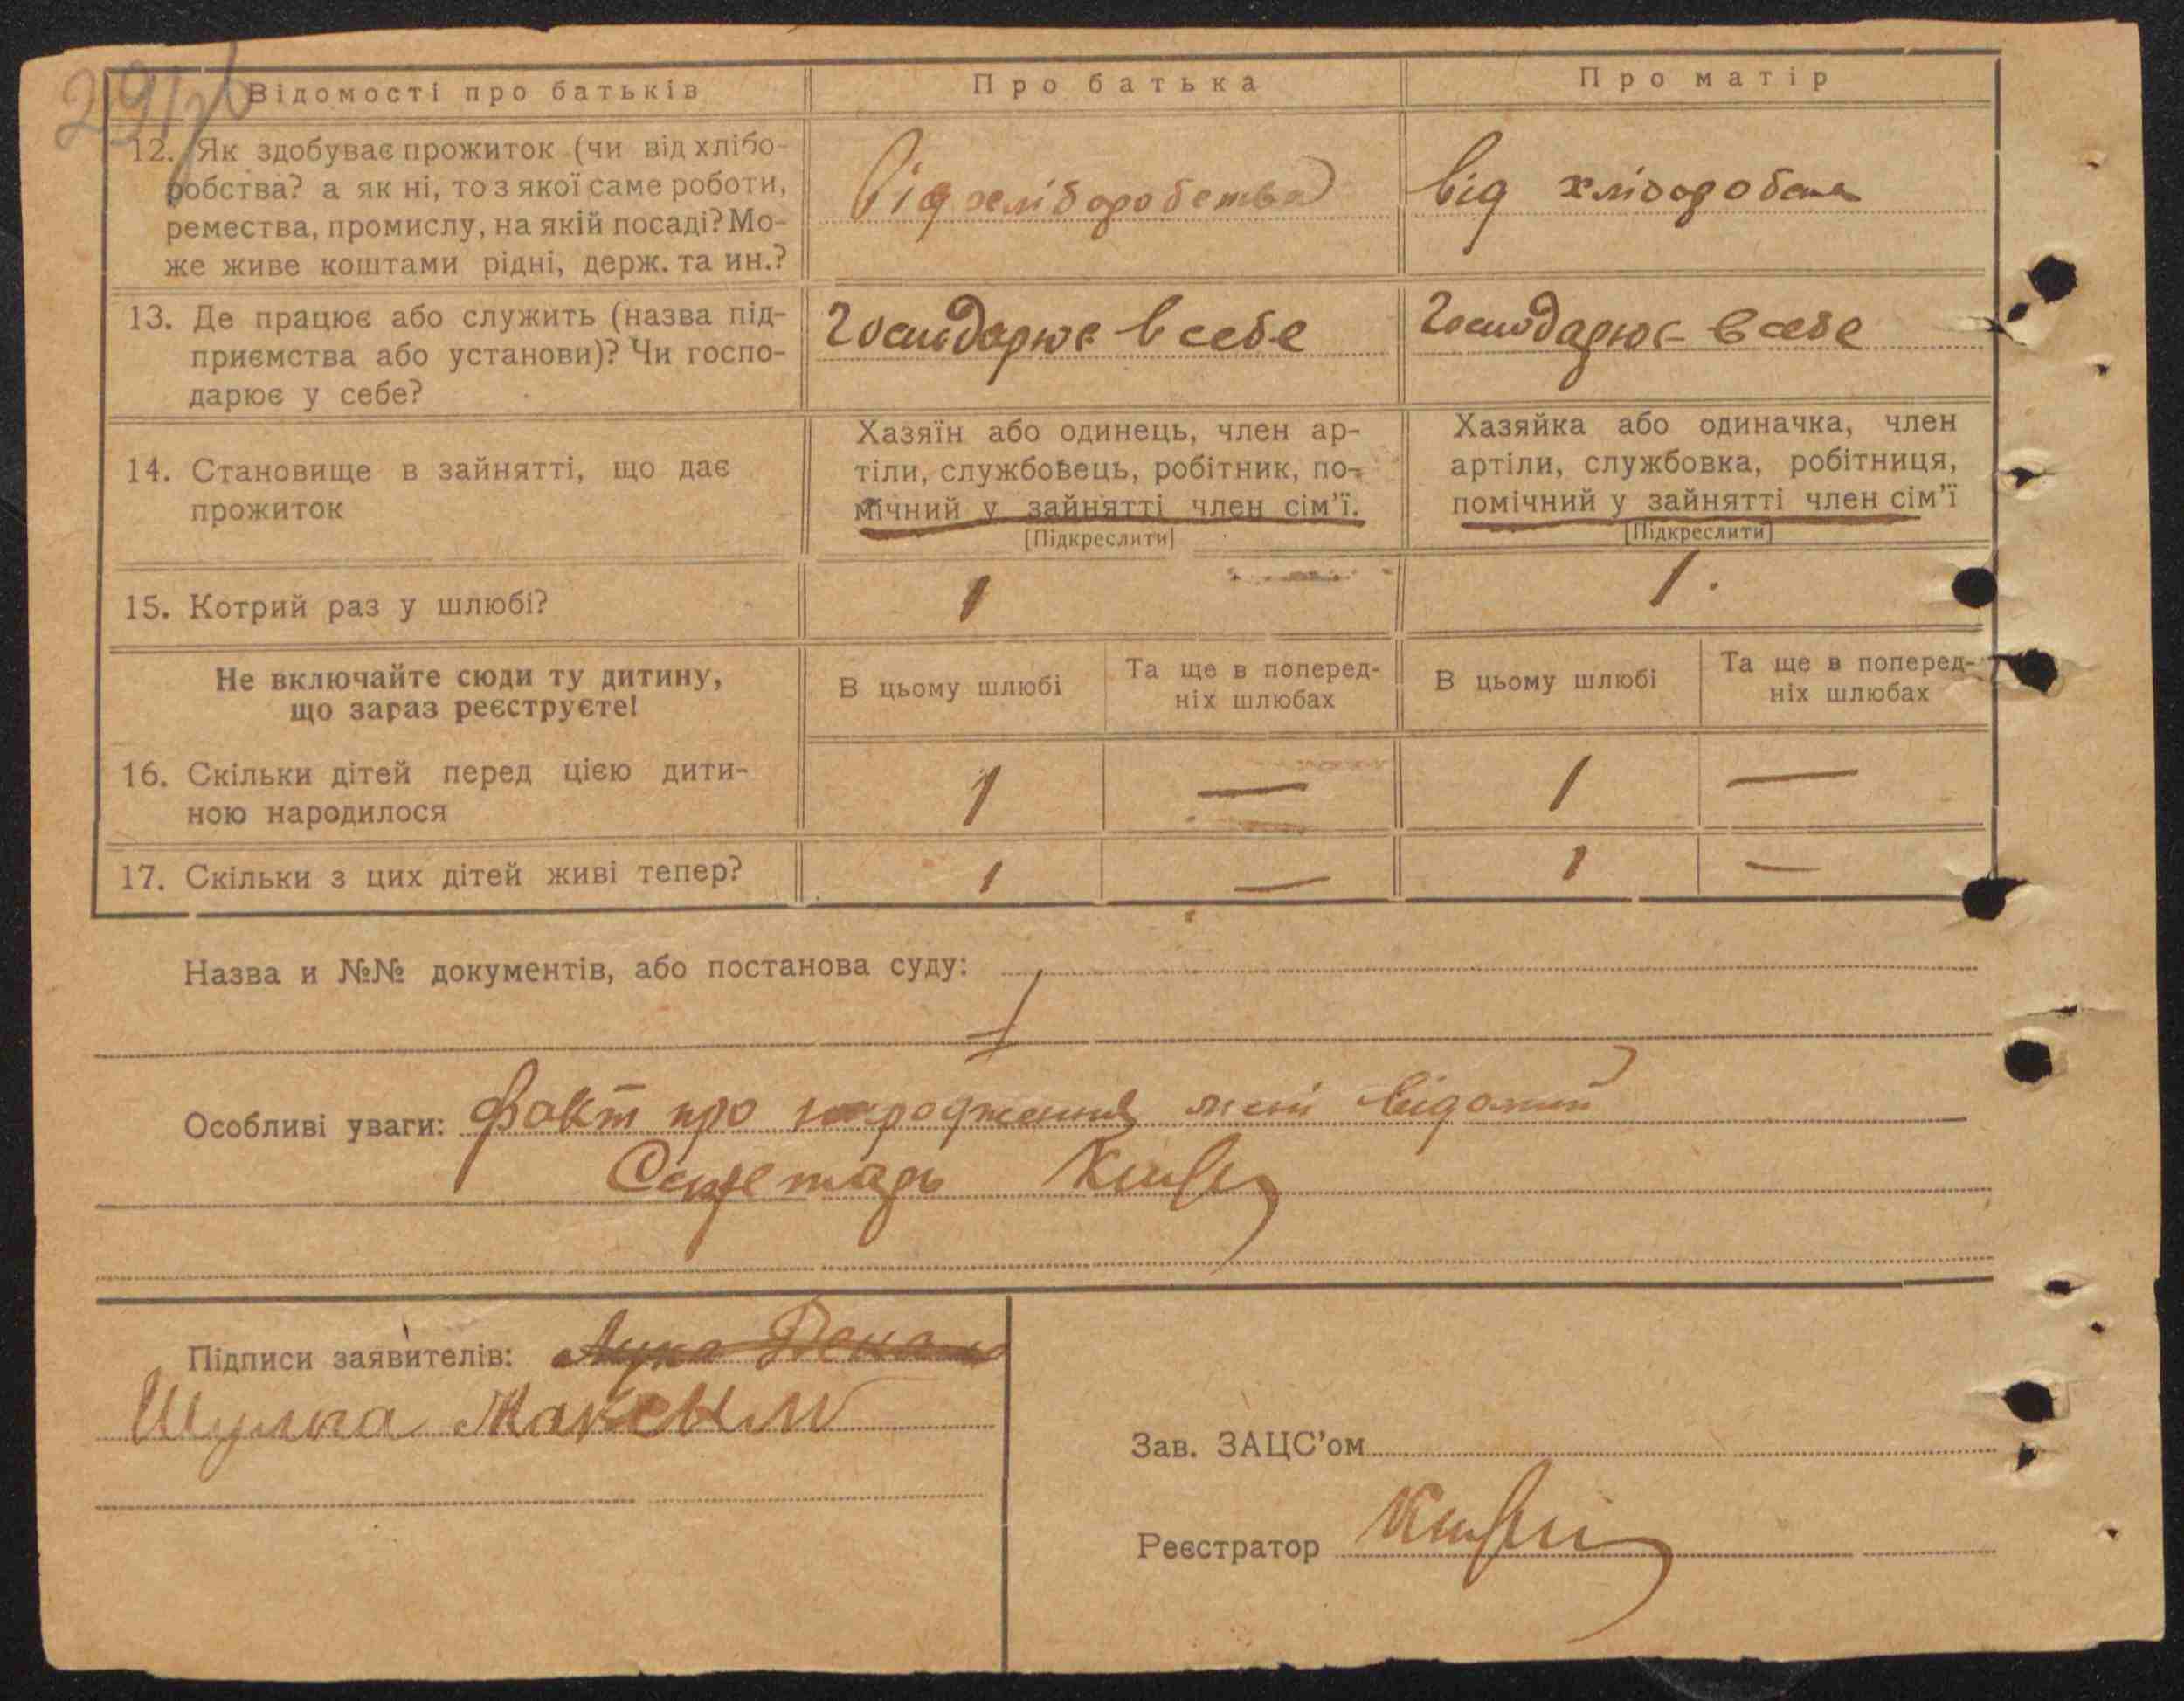 Відомості про батьків
Про батька
Про матір
12. Як здобуває прожиток (чи від хлібо-
робства? а як ні, то з якої саме роботи,
ремества, промислу, на якій посаді? Мо-
же живе коштами рідні, держ. та ин.?
Від хліборобства
від хлібороб
13. Де працює або служить (назва під-
приємства або установи)? Чи госпо-
дарює у себе?
Господарює в себе
Господарює в себе
14. Становище в зайнятті, що дає
прожиток
Хазяїн або одинець, член ар-
тіли, службовець, робітник, по-
мічний у зайнятті член сім'ї.
[Підкреслити]
Хазяйка або одиначка, член
артіли, службовка, робітниця,
помічний у зайнятті член сім'ї
[Підкреслити]
15. Котрий раз у шлюбі?
1
1.
Не включайте сюди ту дитину,
що зараз реєструєте!
В цьому шлюбі
Та ще в поперед-
ніх шлюбах
В цьому шлюбі
Та ще в поперед-
ніх шлюбах
16. Скільки дітей перед цією дити-
ною народилося
1
—
1
—
17. Скільки з цих дітей живі тепер?
1
—
1
—
Назва и №№ документів, або постанова суду:
Особливі уваги: Факт про народження мені відомий
Секретарь
Підписи заявителів:
Шулька Максим
Зав. ЗАЦС'ом
Реєстратор